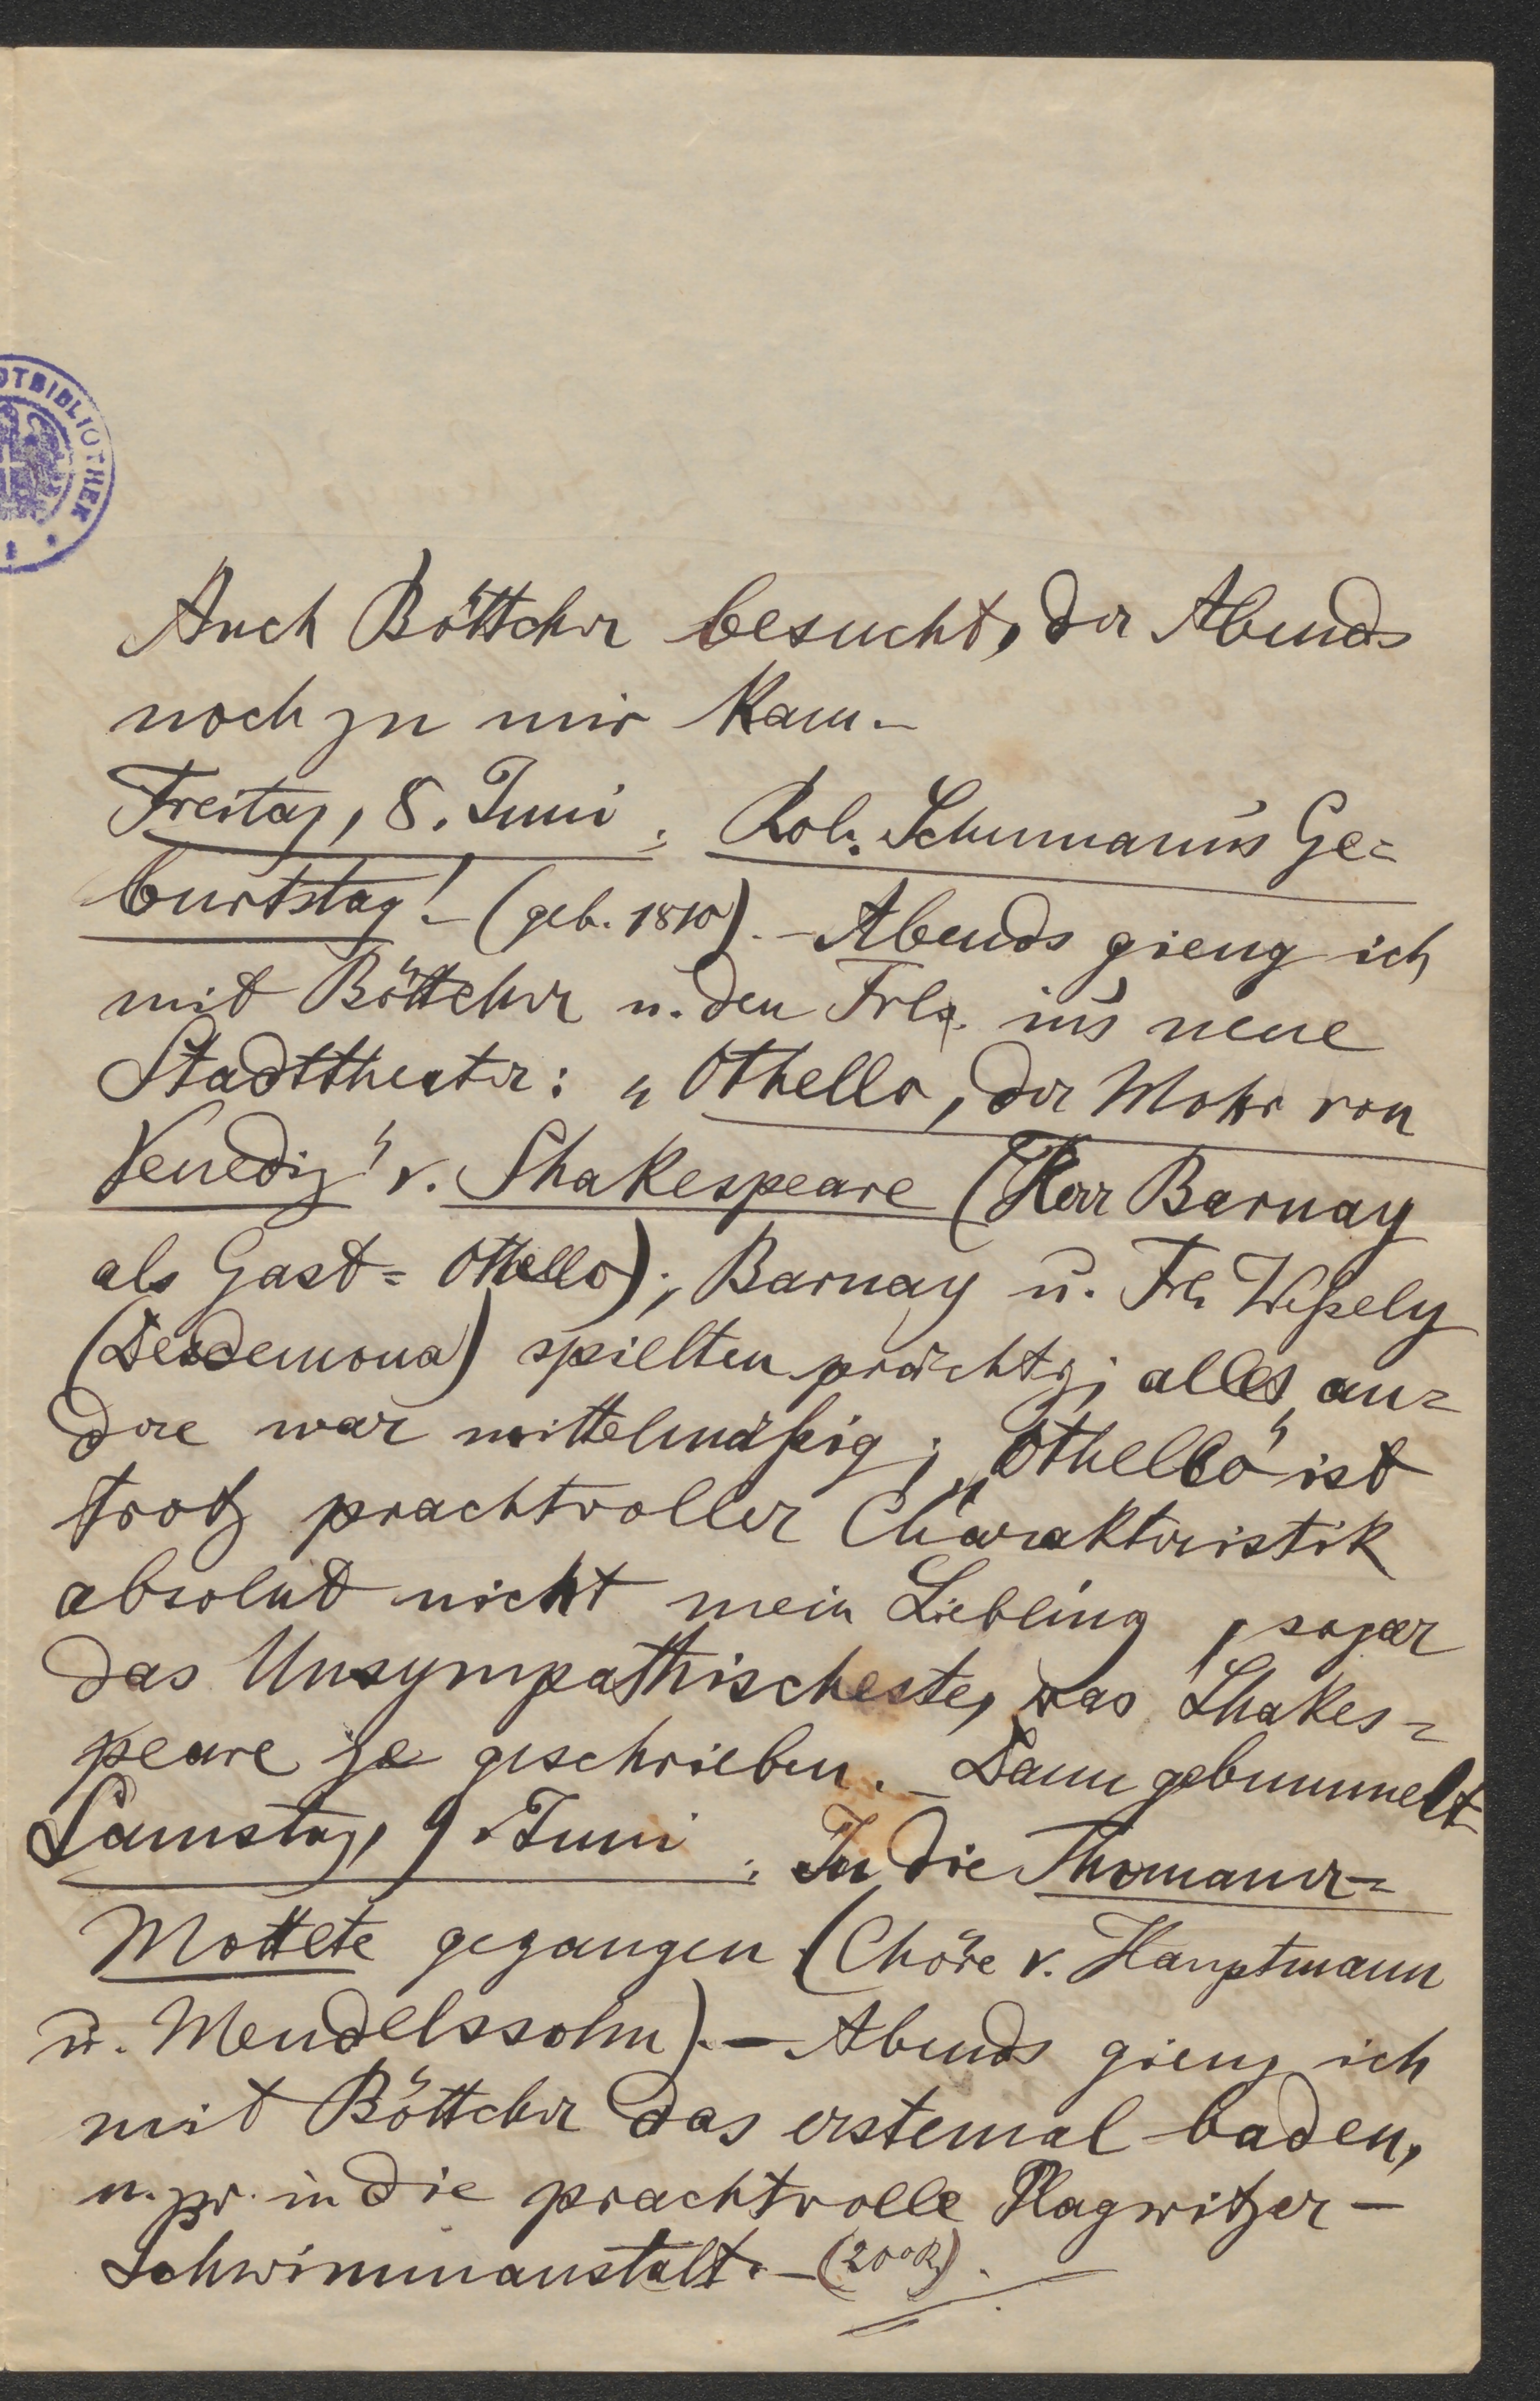 DTBIBLIOTHEK
Auch Böttcher besucht, der Abends
noch zu mir kam.–
Freitag, 8. Juni : Rob. Schumann's Ge=
burtstag! – (geb. 1810). – Abends gieng ich
mit Böttcher u. den Frls. in's neue
Stadttheater: „Othello, der Mohr von
Venedig" v. Shakespeare (Herr Barnay
als Gast = Othello); Barnay u. Frl. Weßely
(Desdemona) spielten prächtg; alles an=
dere war mittelmäßig; „Othello" ist
trotz prachtvoller Charakteristik
absolut nicht mein Liebling, sogar
das Unsympathischeste, was Shakes=
peare je geschrieben. – Dann gebummelt
Samstag, 9. Juni : In die Thomaner=
Mottete gegangen (Chöre v. Hauptmann
u. Mendelssohn). – Abends gieng ich
mit Böttcher das erstemal baden,
u. zw. in die prachtvolle Plagwitzer –
Schwimmanstalt. – (20°R).